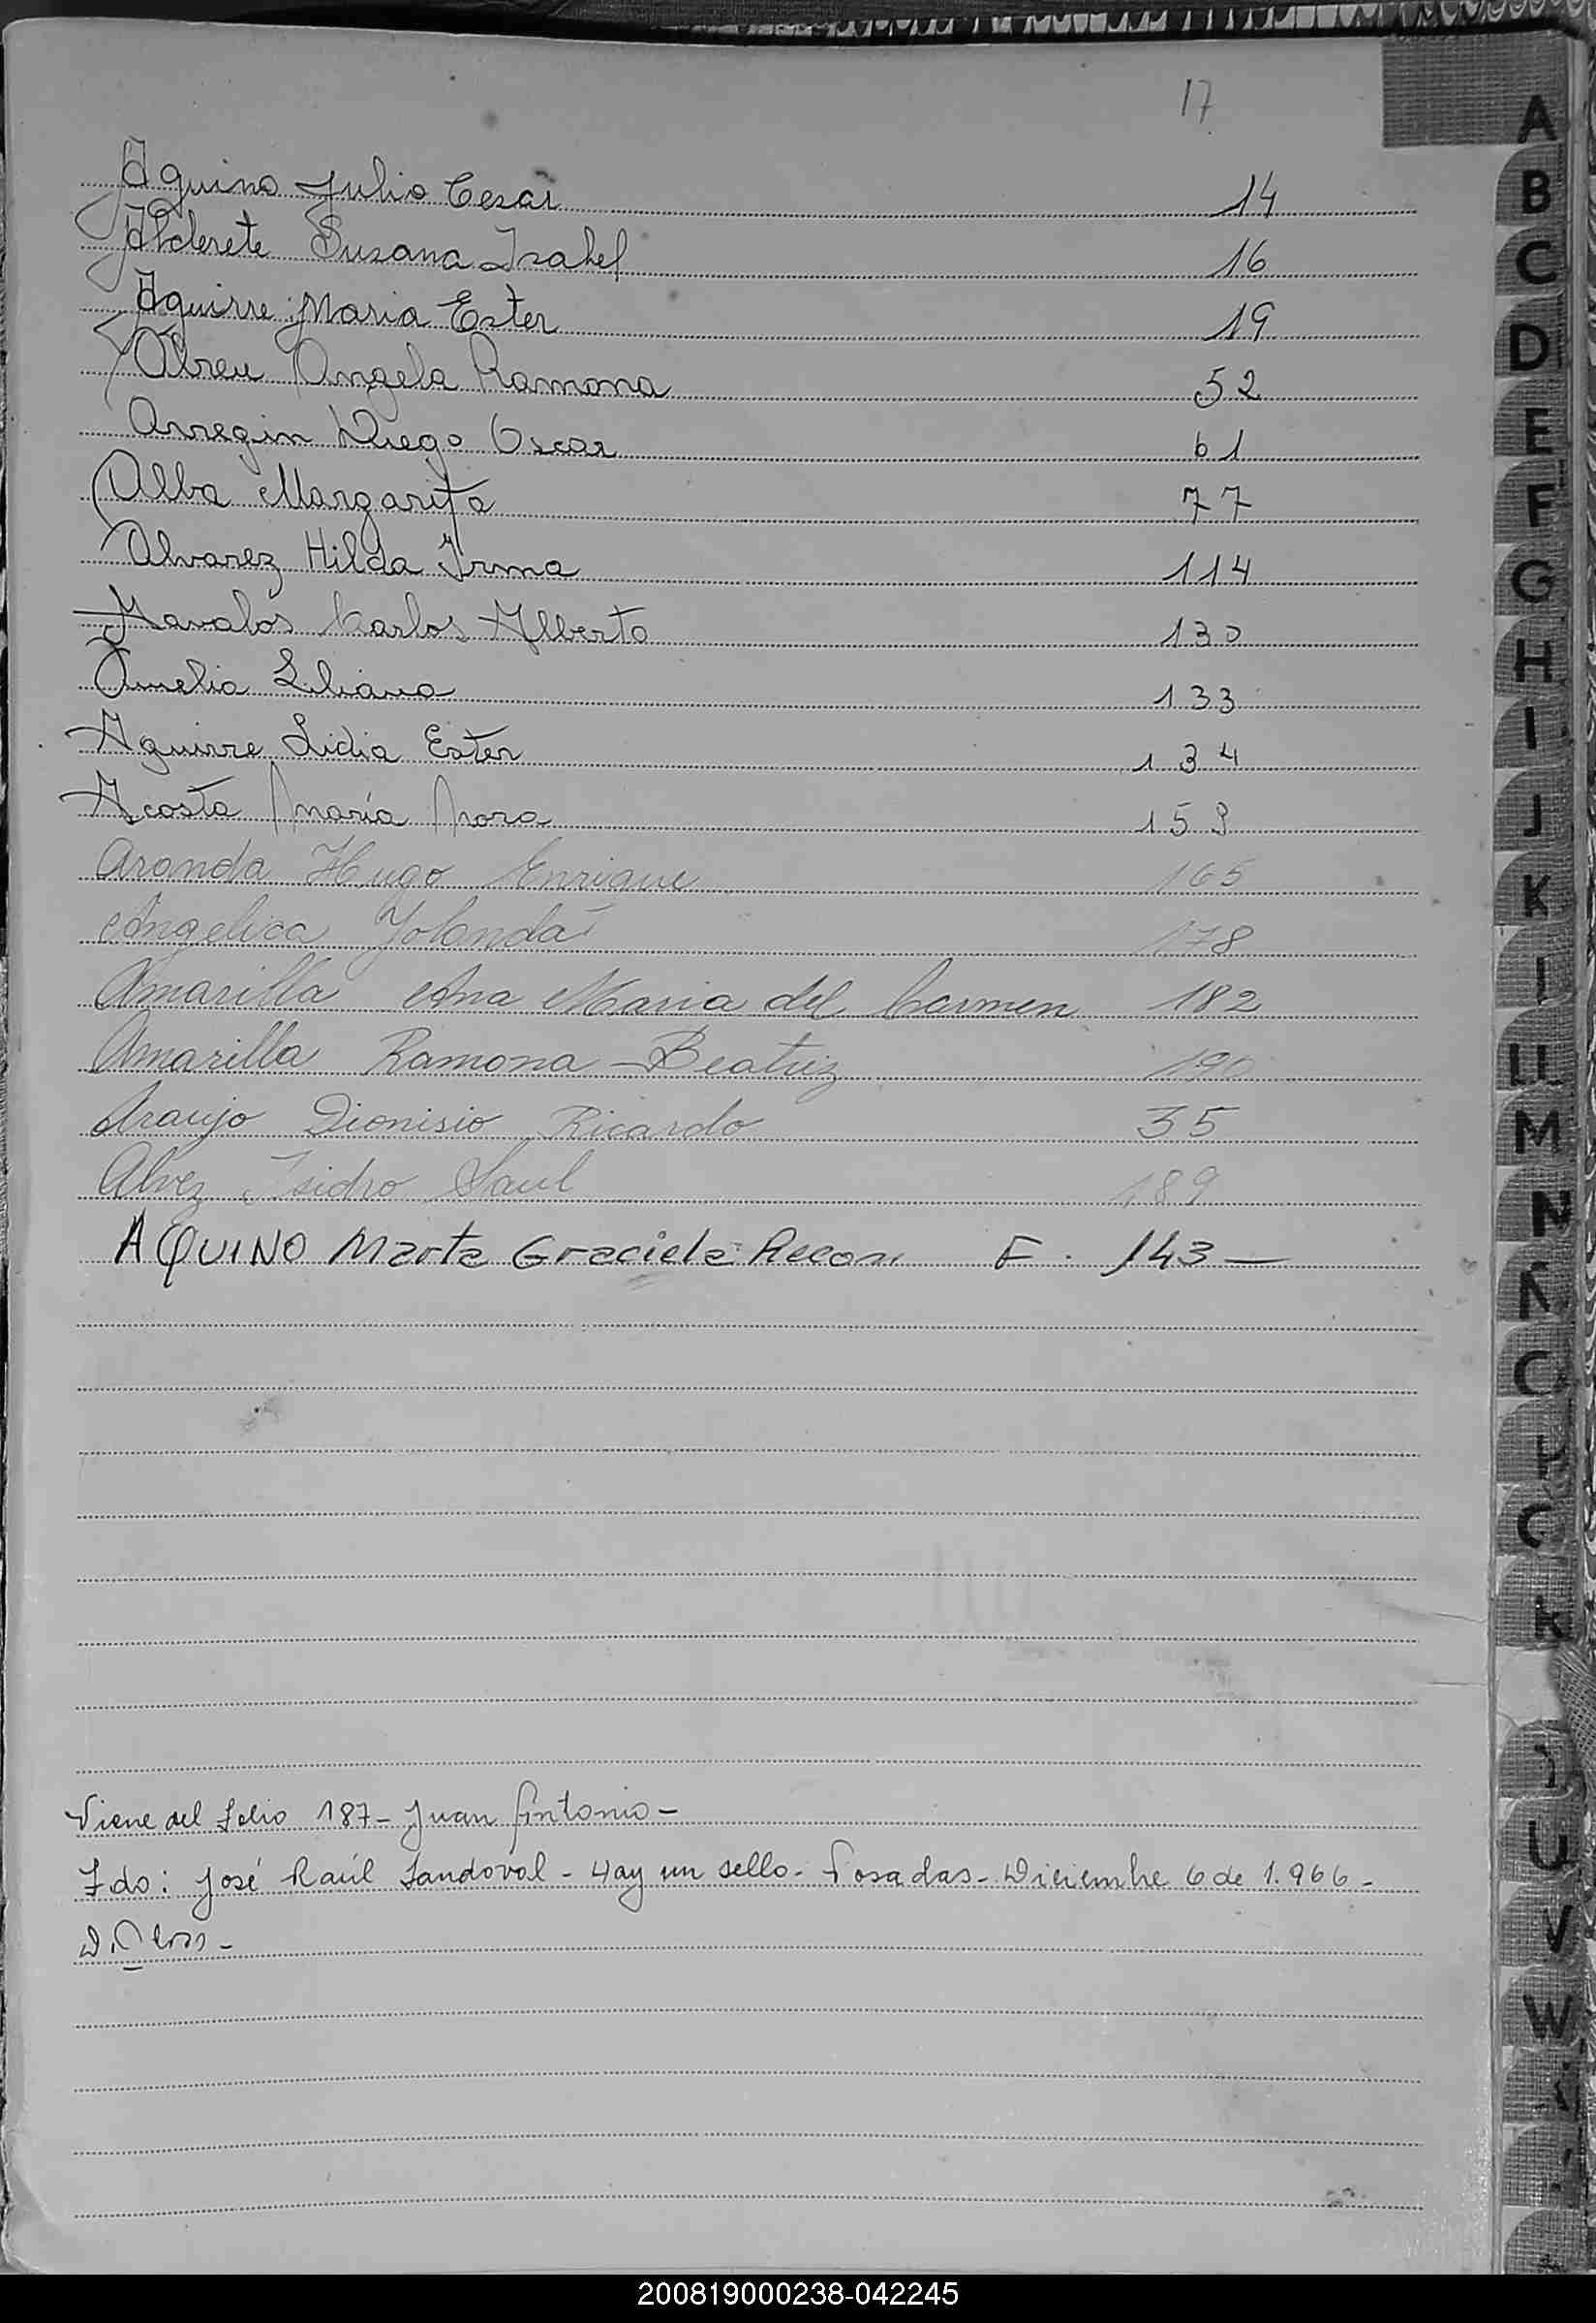 17
Aquino Julio Cesar 14
Alderete Susana Isabel 16
Aguirre Maria Ester 19
Abreu Angela Ramona 52
Arregin Diego Oscar 61
Alba Margarita 77
Alvarez Hilda Irma 114
Carlos Alberto 130
Amelia Liliana 133
Aguirre Lidia Ester 134
Acosta María Nora 159
Aranda Hugo Enrique 165
Angelica Yolanda 178
Amarilla Ana Maria del Carmen 182
Amarilla Ramona Beatriz 190
Araujo Dionisio Ricardo 35
Alvez Isidro Saul 189
AQUINO Marta Graciela Recon. F. 143 —
Viene del folio 187 - Juan Antonio -
Fdo: José Raúl Sandoval - Hay un sello - Posadas - Diciembre 6 de 1.966 -
A
B
C
D
E
F
G
H
I
J
K
M
N
U
V
W
200819000238-042245